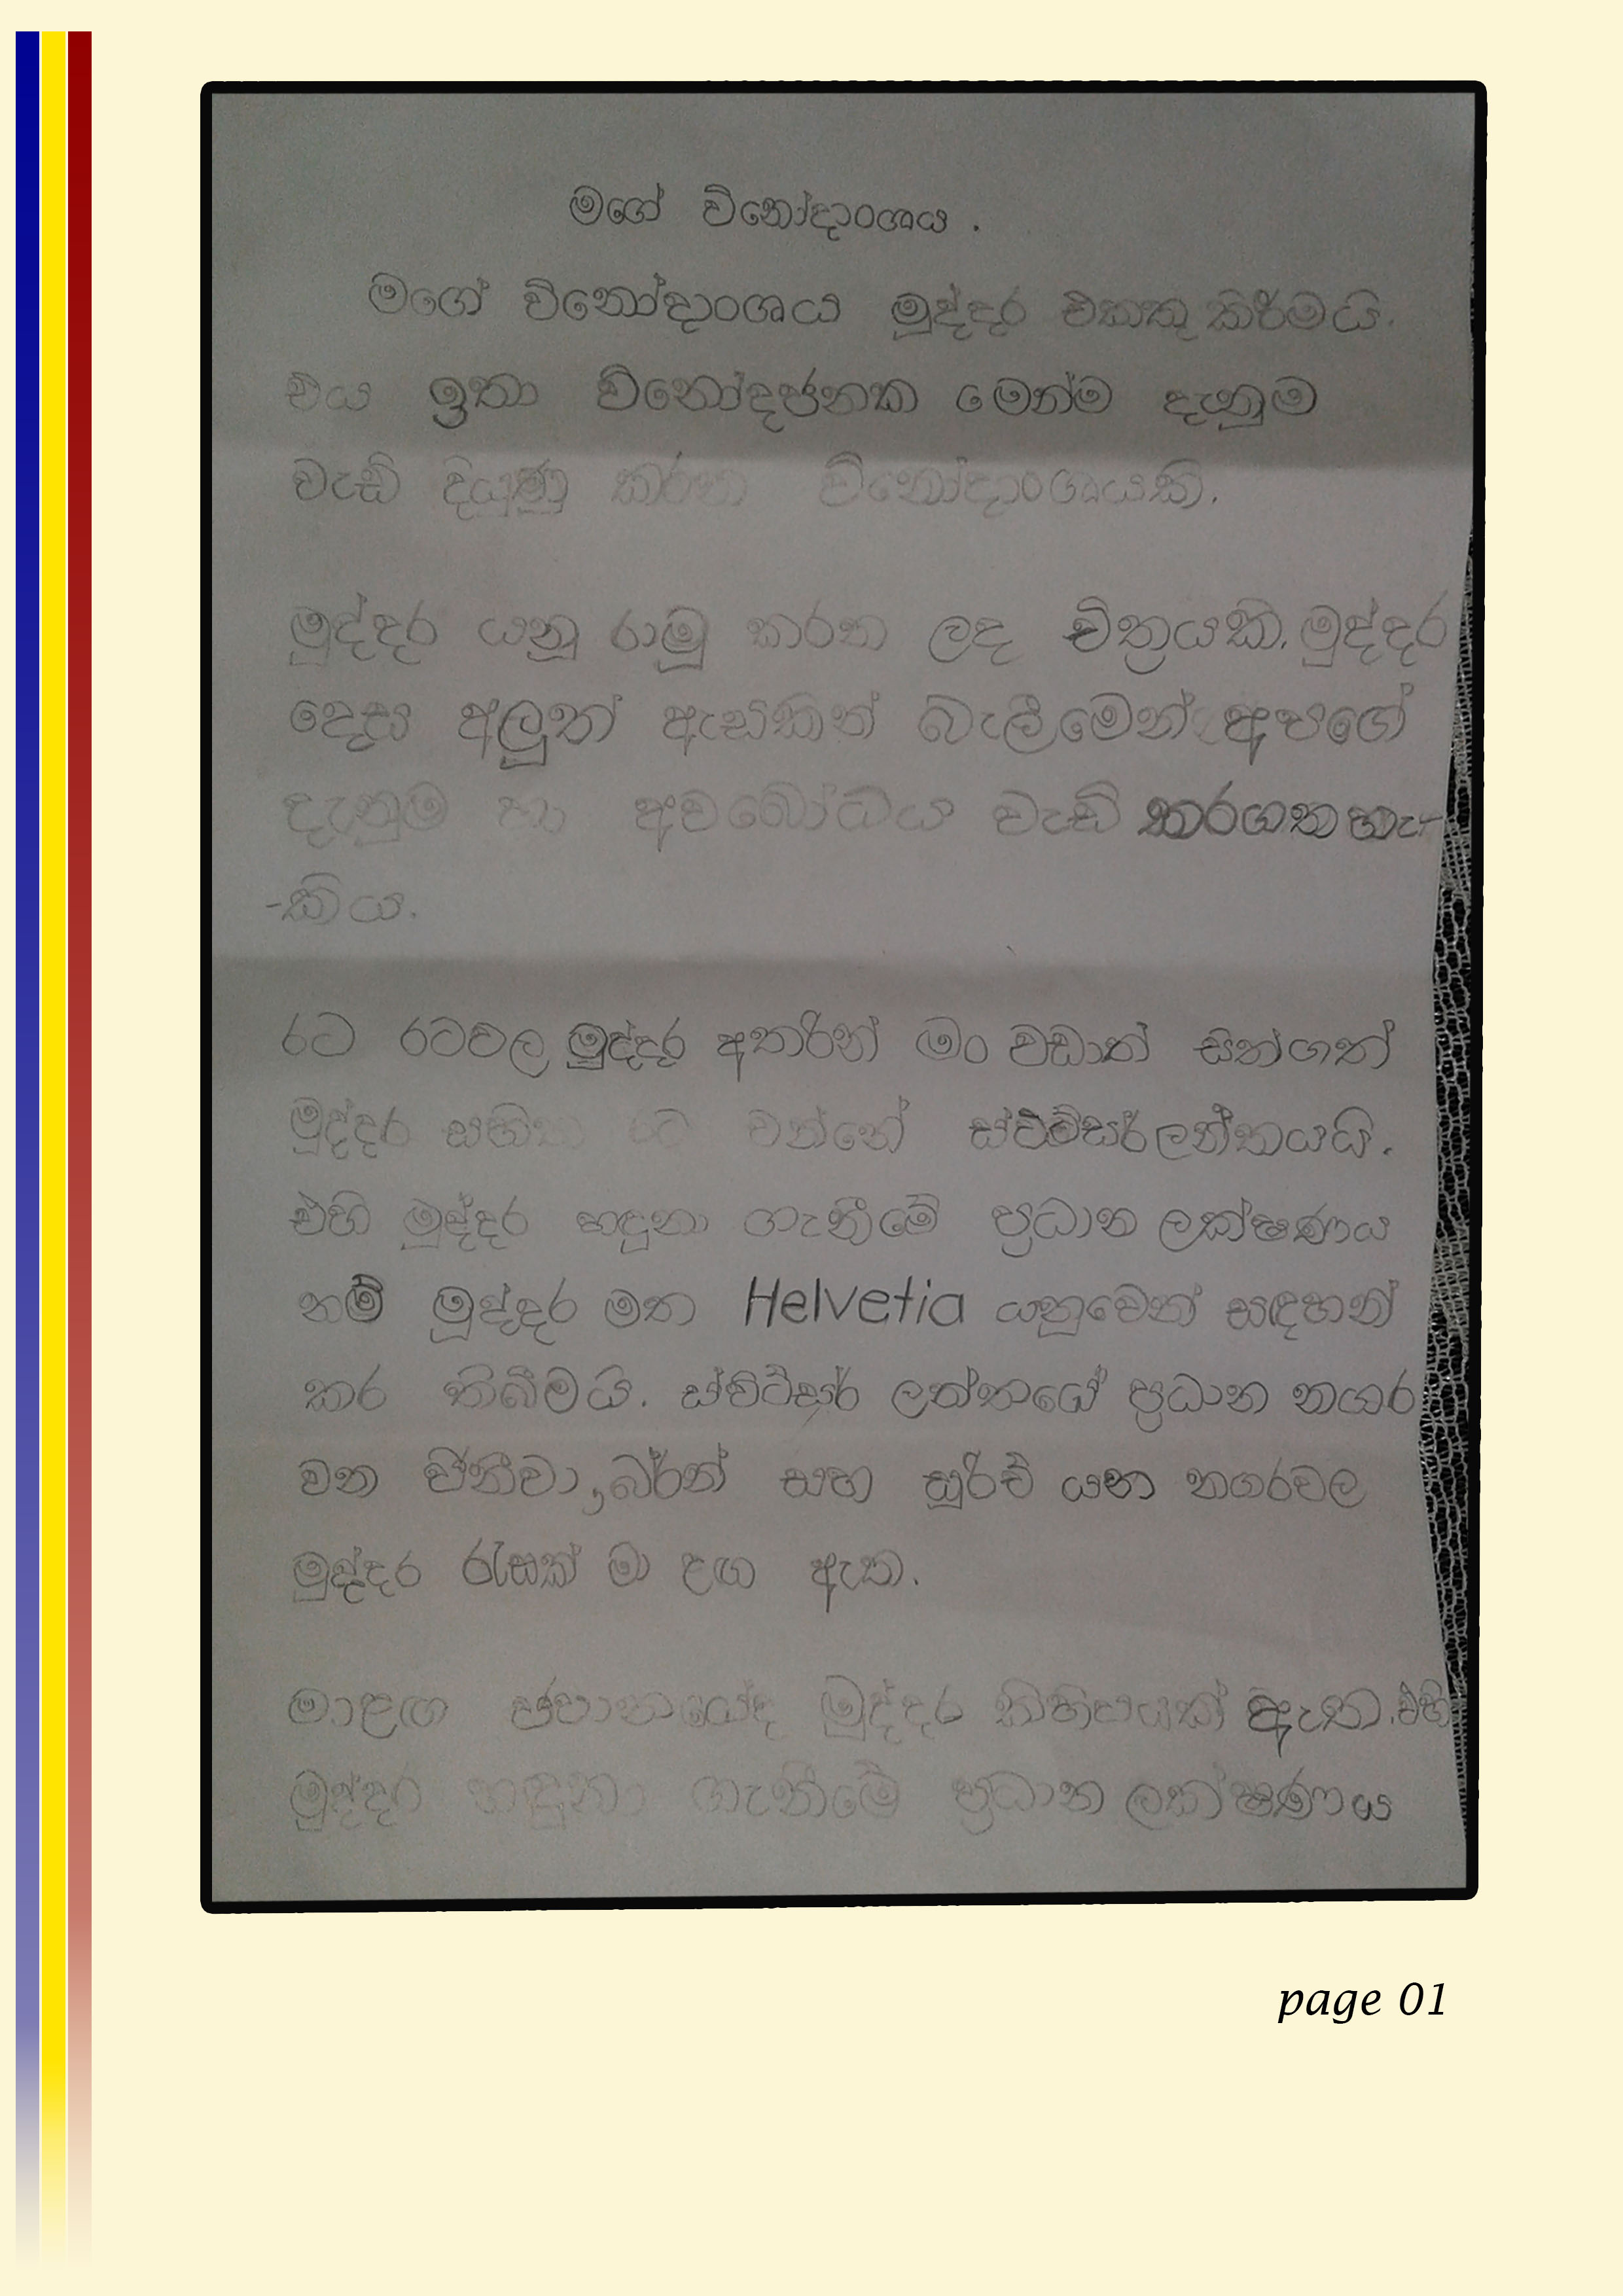 මගේ විනෝදාංශය .
මගේ විනෝදාංශය මුද්දර එකතු කිරීමයි.
එය ඉතා විනෝදජනක මෙන්ම දැනුම
වැඩි දියුණු කරන විනෝදාංශයකි.
මුද්දර යනු රාමු කරන ලද චිත්‍රයකි. මුද්දර
දෙස අලුත් ඇසකින් බැලීමෙන් අපගේ
දැනුම හා අවබෝධය වැඩි කරගත හැ-
-කිය.
රට රටවල මුද්දර අතරින් මං වඩාත් සිත්ගත්
මුද්දර සහිත රට වන්නේ ස්විට්සර්ලන්තයයි.
එහි මුද්දර හඳුනා ගැනීමේ ප්‍රධාන ලක්ෂණය
නම් මුද්දර මත Helvetia යනුවෙන් සඳහන්
කර තිබීමයි. ස්විට්සර් ලන්තයේ ප්‍රධාන නගර
වන ජිනීවා ,බර්න් සහ සූරිච් යන නගරවල
මුද්දර රැසක් මා ළඟ ඇත.
මාළඟ ජපානයේද මුද්දර කිහිපයක් ඇත. එහි
මුද්දර හඳුනා ගැනීමේ ප්‍රධාන ලක්ෂණය
page 01